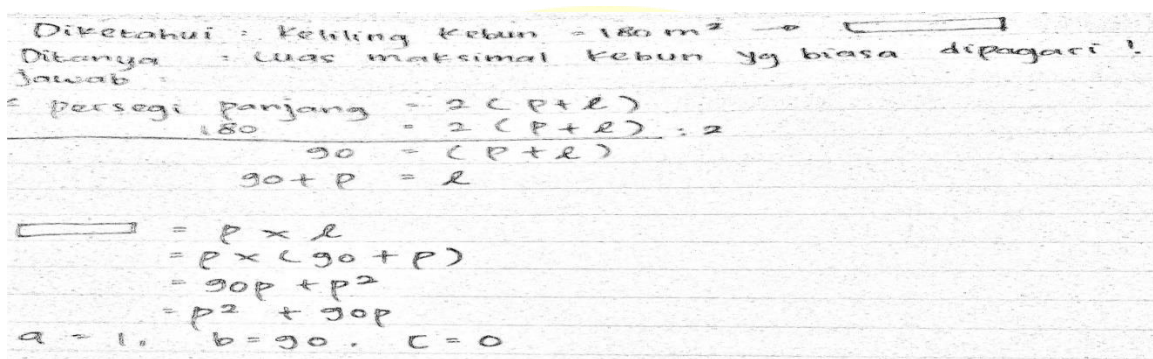 Diketahui : Keliling Kebun = 180 m² →
Ditanya : Luas maksimal Kebun yg biasa dipagari !
Jawab :
= persegi panjang = 2 ( p + l )
180 = 2 ( p + l ) : 2
90 = ( p + l )
90 + p = l
= p × l
= p × ( 90 + p )
= 90p + p²
= p² + 90p
a = 1. b = 90. c = 0